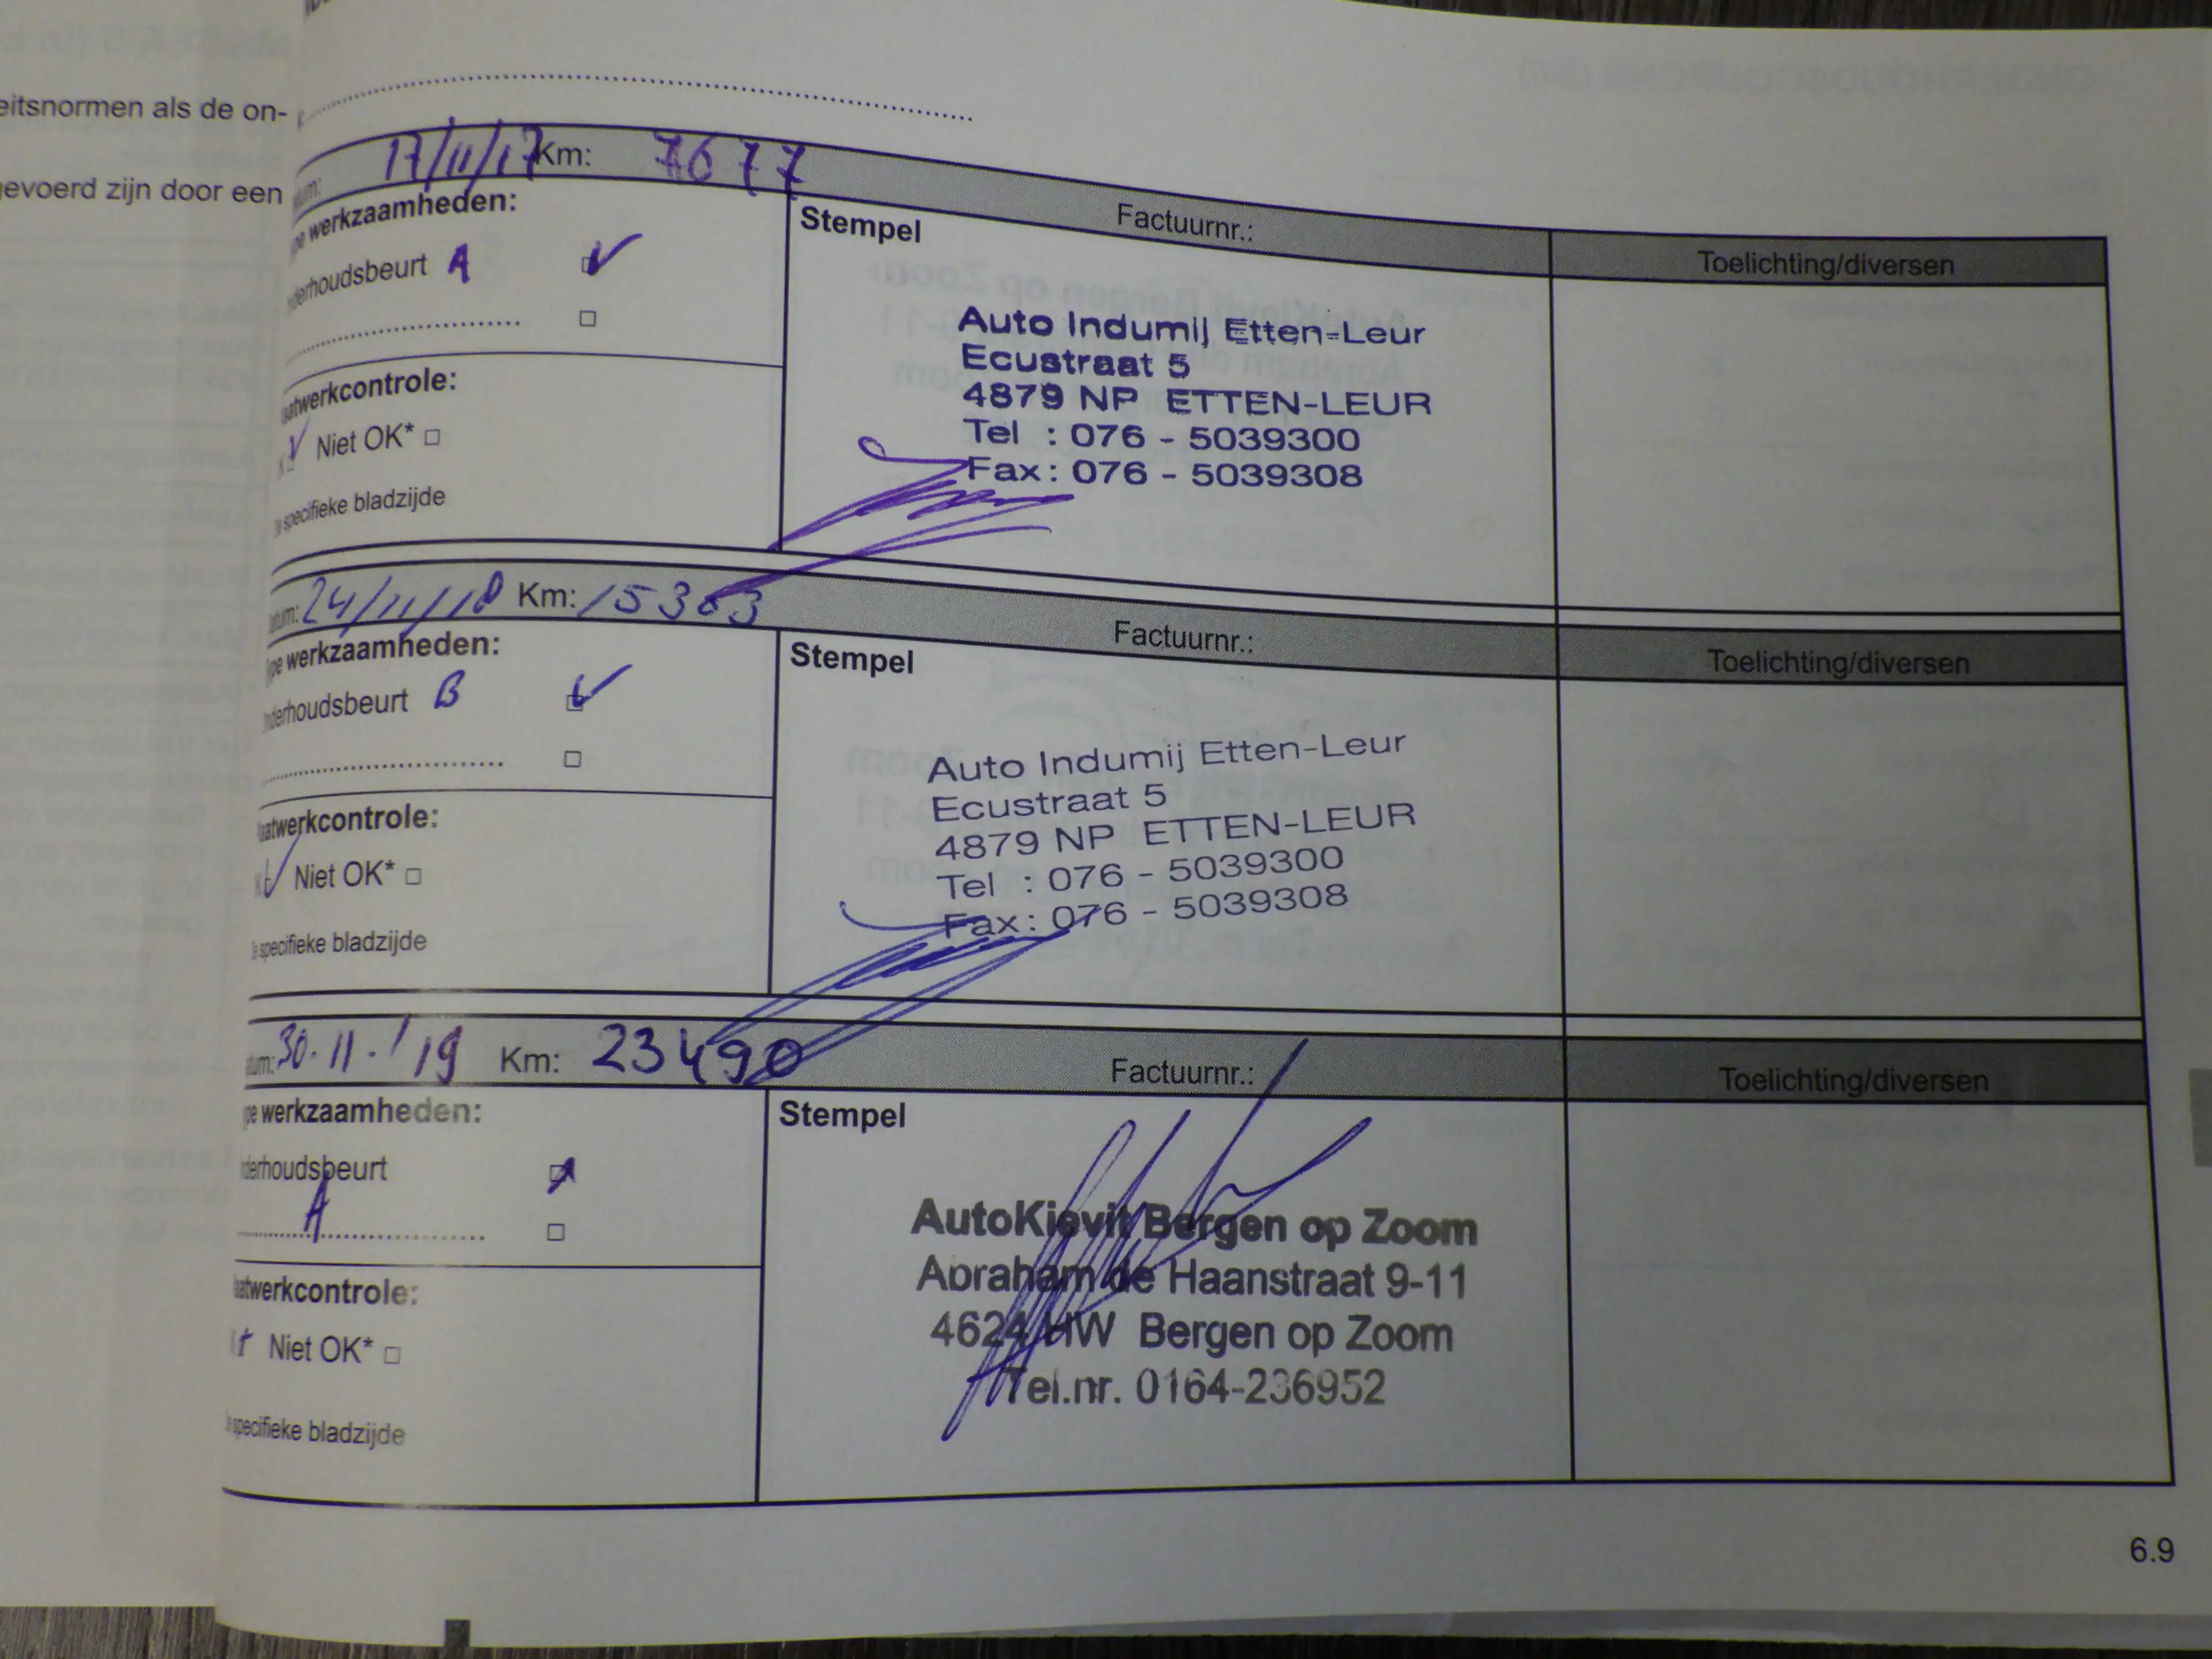 eitsnormen als de on-
gevoerd zijn door een
17/11/17 Km: 7677
Factuurnr.:
Toelichting/diversen
werkzaamheden:
Stempel
derhoudsbeurt A
Auto Indumij Etten-Leur
Ecustraat 5
4879 NP ETTEN-LEUR
Tel : 076 - 5039300
Fax : 076 - 5039308
atwerkcontrole:
Niet OK*
specifieke bladzijde
24/11/18 Km: 15303
Factuurnr.:
Toelichting/diversen
pe werkzaamheden:
Stempel
nderhoudsbeurt B
Auto Indumij Etten-Leur
Ecustraat 5
4879 NP ETTEN-LEUR
Tel : 076 - 5039300
Fax : 076 - 5039308
aatwerkcontrole:
Niet OK*
specifieke bladzijde
tum: 30.11.'19 Km: 23490
Factuurnr.:
Toelichting/diversen
pe werkzaamheden:
Stempel
derhoudsbeurt
A
AutoKievit Bergen op Zoom
Abraham de Haanstraat 9-11
4624 HW Bergen op Zoom
Tel.nr. 0164-236952
atwerkcontrole:
Niet OK*
specifieke bladzijde
6.9